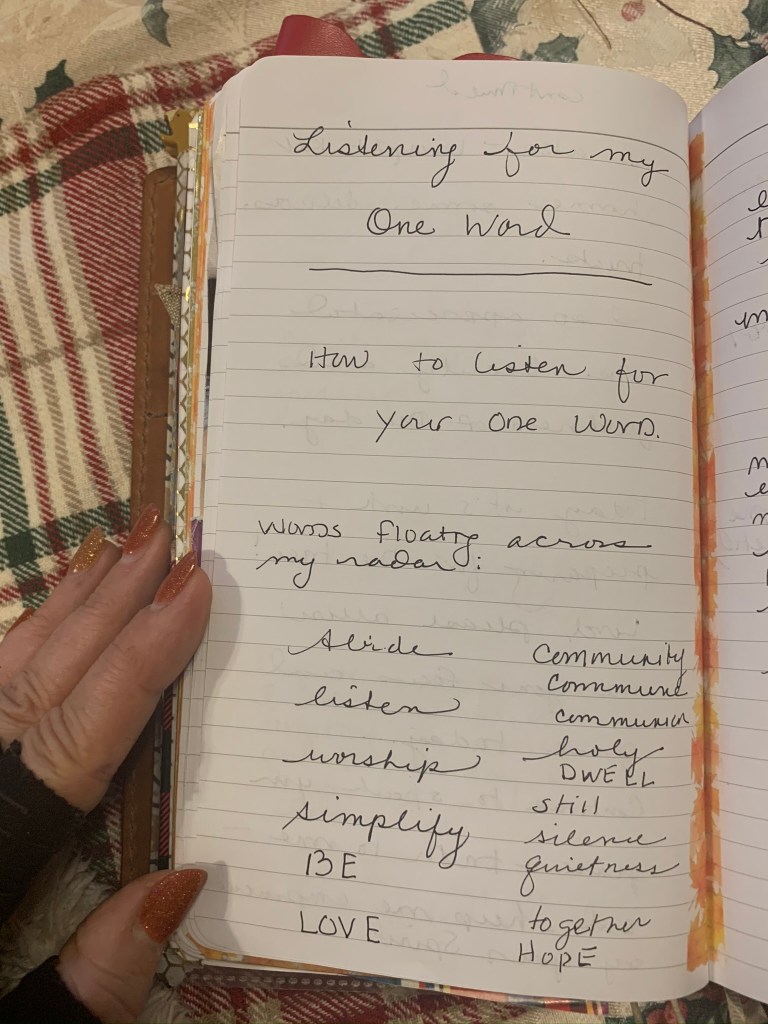 Listening for my
One Word
How to listen for
your one word.
words floatng across
my radar:
Abide
listen
worship
simplify
BE
LOVE
Community
Commune
communion
holy
DWELL
still
silence
quietness
together
HOPE